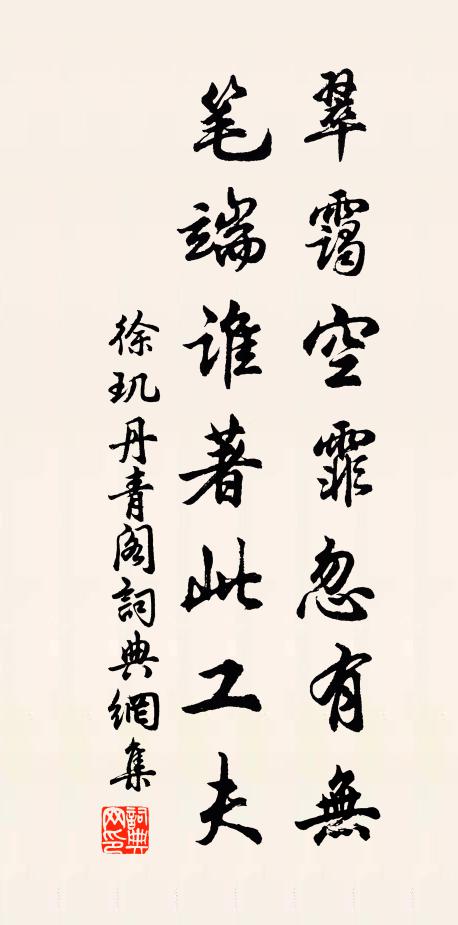 翠靄空霏忽有無
笔端谁著此工夫
徐玑丹青阁詞典網集
詞典網印